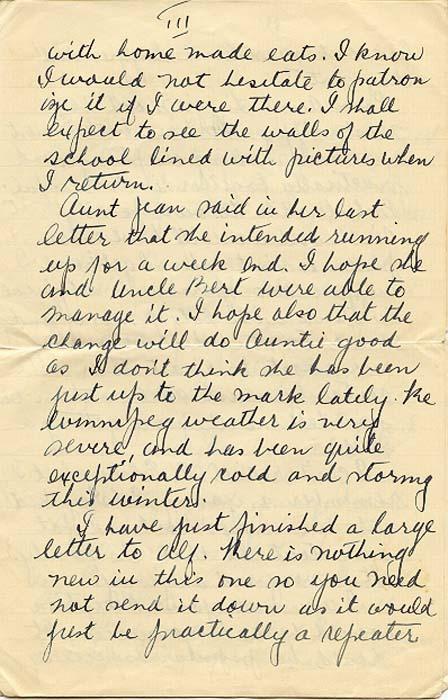 III
with home made eats. I know
I would not hesitate to patron
ize it if I were there. I shall
expect to see the walls of the
school lined with pictures when
I return.
Aunt Jean said in her last
letter that she intended running
up for a week end. I hope she
and Uncle Bert were able to
manage it. I hope also that the
change will do Auntie good
as I don't think she has been
just up to the mark lately. The
Winnipeg weather is very
severe, and has been quite
exceptionally cold and stormy
this winter.
I have just finished a large
letter to Alf. There is nothing
new in this one so you need
not send it down as it would
just be practically a repeater